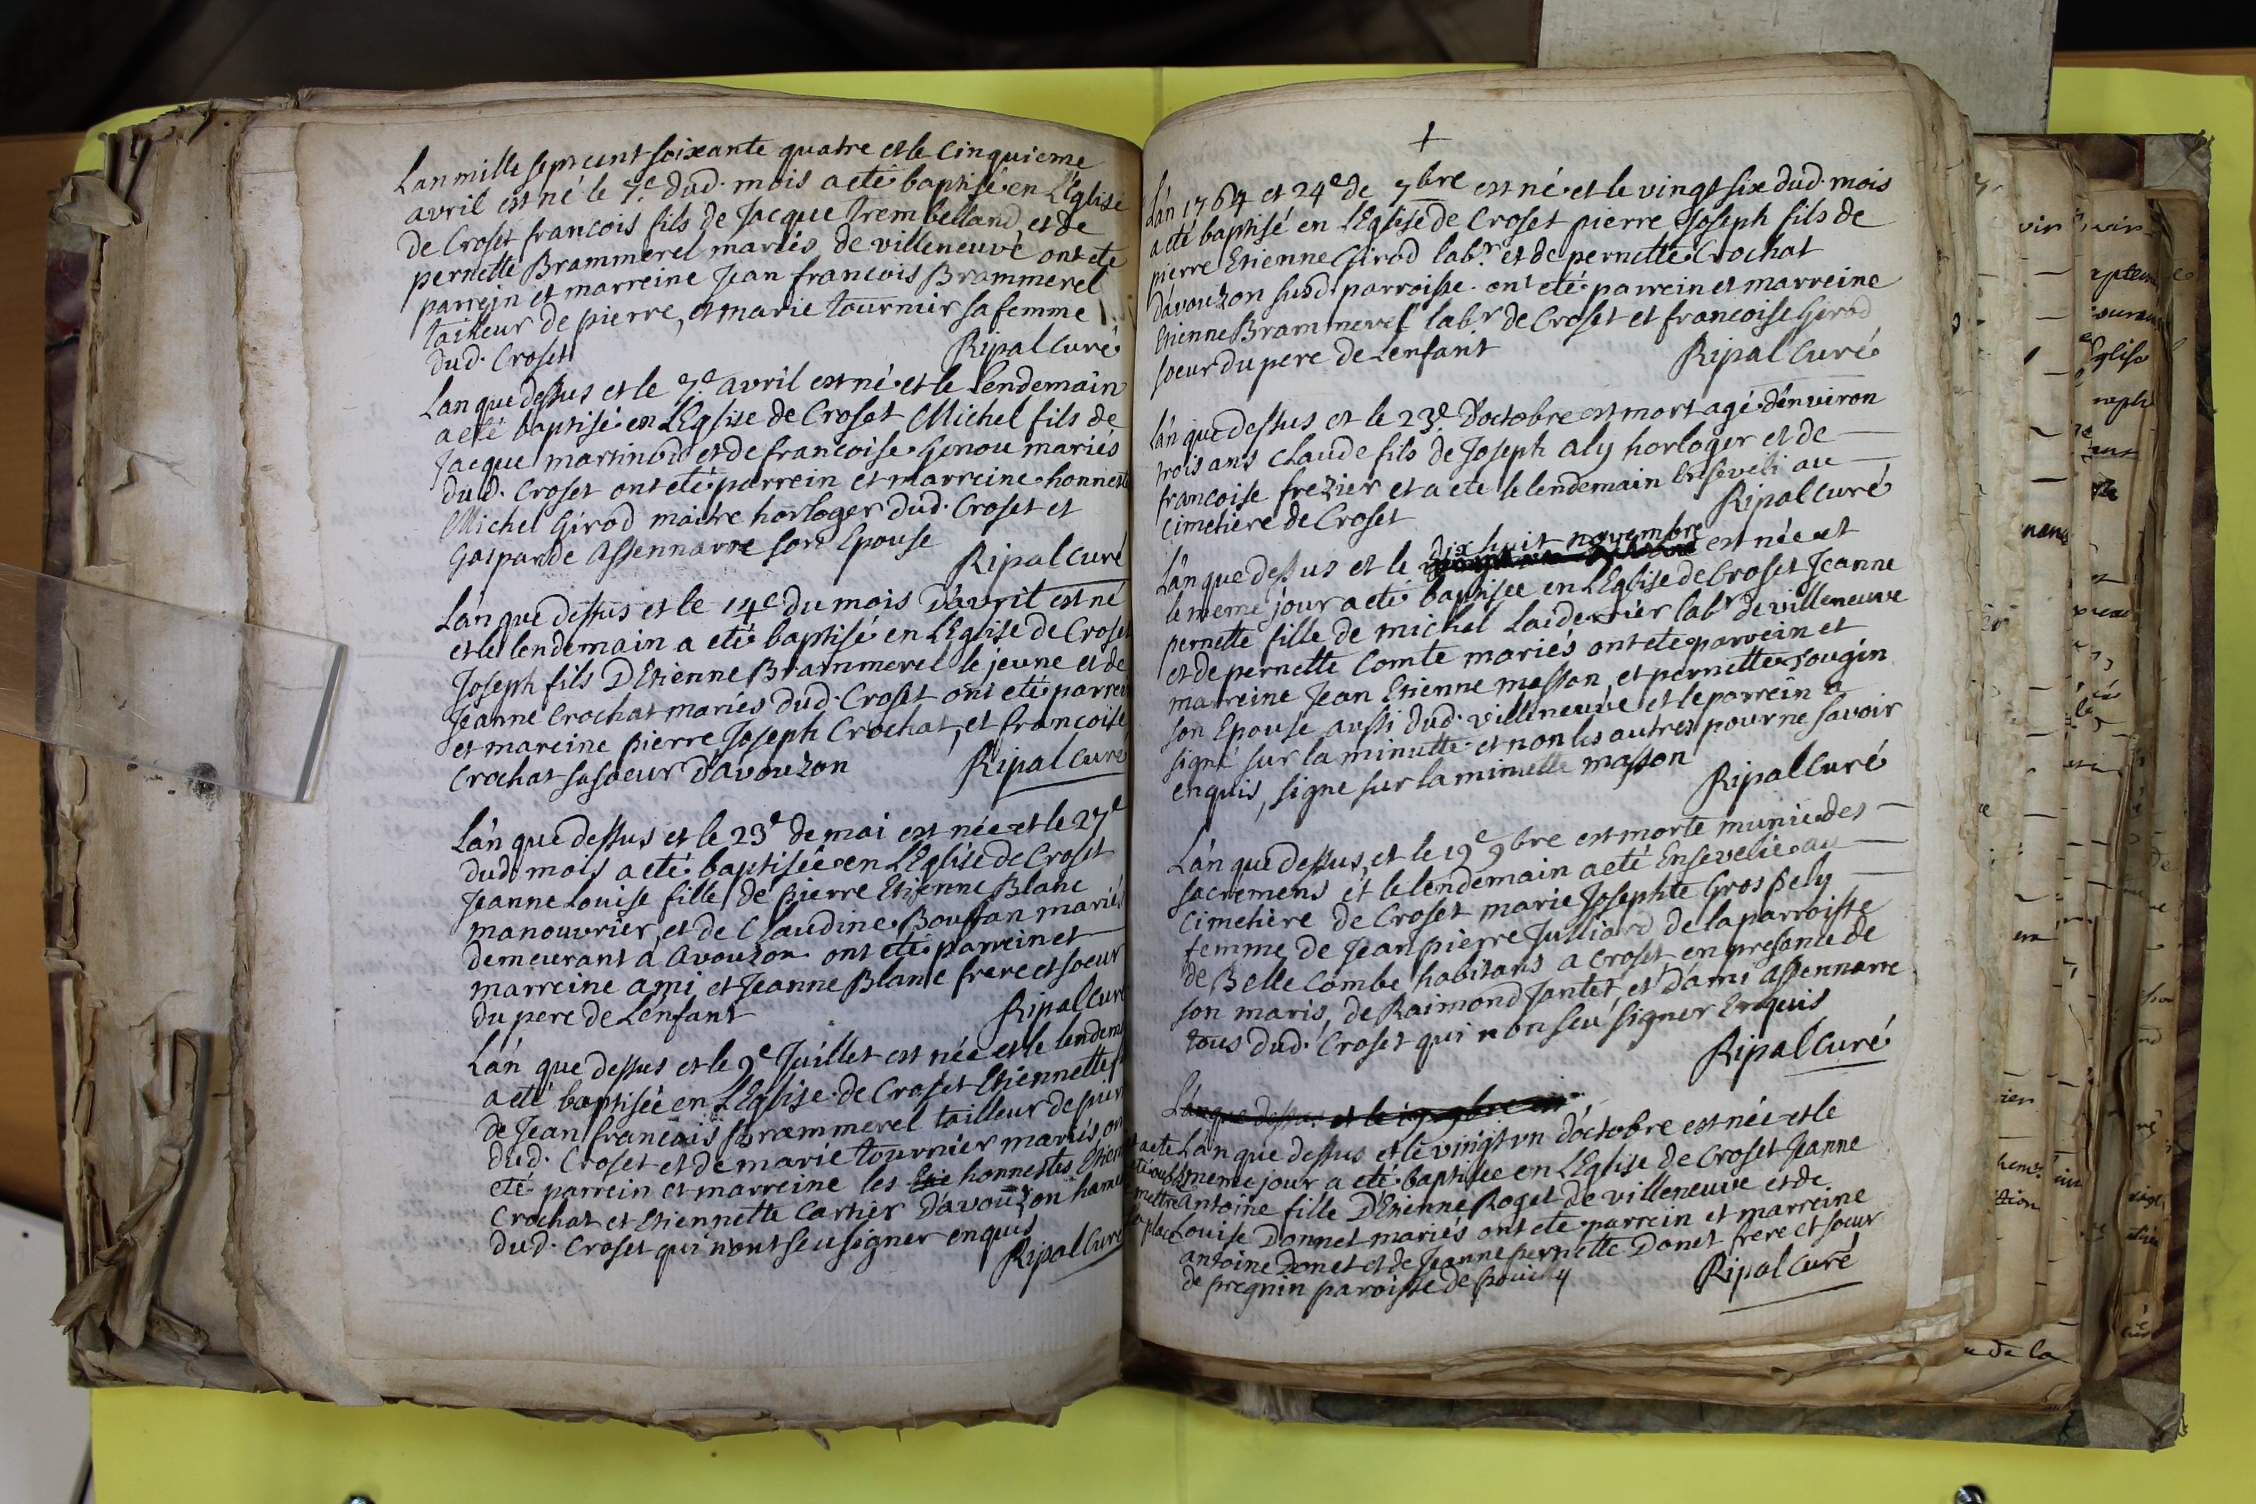 Lan mille sept cent soixante quatre et le cinquieme
avril est né le 7.e dud. mois a eté baptisé en LEglise
de Croset francois fils de Jacque Trembelland et de
pernette Brammerel mariés de villeneuve ont eté
parrein et marreine Jean francois Brammerel
tailleur de pierre, et marie tournier sa femme
dud. Croset
Ripal Curé
Lan que dessus et le 7.e avril est né et le lendemain
a eté baptisé en LEglise de Croset Michel fils de
Jacque martin et de francoise Genou mariés
dud. Croset ont eté parrein et marreine honneste
Michel Girod maitre horloger dud. Croset et
Gasparde Assennarre son Epouse
Ripal Curé
Lán que dessus et le 14e du mois d'avril est né
et le lendemain a eté baptisé en LEglise de Croset
Joseph fils D'Etienne Brammerel le jeune et de
Jeanne Crochat mariés dud. Croset ont eté parrein
et mareine pierre Joseph Crochat, et francoise
Crochat sa soeur d'avouzon
Ripal Curé
Lán que dessus et le 23e de mai est née et le 27e
dud. mois a eté baptisée en LEglise de Croset
Jeanne Louise fille de pierre Etienne Blanc
manouvrier, et de Claudine Bouffan mariés
demeurant á avouzon ont eté parrein et
marreine ami et Jeanne Blanc frere et soeur
du pere de Lenfant
Ripal Curé
Lán que dessus et le 9e Juillet est née et le lendem
a eté baptisée en LEglise de Croset Etiennette f
de Jean francais Brammerel tailleur de pierr
dud. Croset et de marie tournier mariés on
eté parrein et marreine les honnestes Etien
Crochat et Etiennette Cartier D'avouzon hame
dud. Croset qui n'ont seu signer enquis
Ripal Curé
+
Lán 1764 et 24e de 7bre est né et le vingt six dud. mois
a eté baptisé en LEglise de Croset pierre Joseph fils de
pierre Etienne Girod labr. et de pernette Crochat
d'avouzon susd. parroisse. ont eté parrein et marreine
Etienne Brammerel labr de Croset et francoise Girod
soeur du pere de Lenfant
Ripal Curé
Lán que dessus et le 23e. d'octobre est mort agé d'environ
trois ans Claude fils de Joseph aly horloger et de
francoise frezier et a eté le lendemain Enseveli au
Cimetiere de Croset
Ripal Curé
dix huit novembre
Lán que dessus et le est née et
le meme jour a eté baptisée en LEglise de Croset Jeanne
pernette fille de michel Laidernier labr de villeneuve
et de pernette Comte mariés ont eté parrein et
marreine Jean Etienne masson, et pernette sougin
son Epouse aussi dud. villeneuve et le parrein a
signé sur la minutte et non les autres pour ne savoir
enquis, signe sur la minutte masson
Ripal Curé
Lán que dessus, et le 19e 9bre est morte munie des
sacremens et le lendemain a eté Ensevelie au
Cimetiére de Croset marie Josephte Gros pely
femme de Jean pierre Julliard de la parroisse
de Belle Combe habitans a Croset en presence de
son maris, de Raimond Jantet, et d'ami Assennarre
tous dud. Croset qui n'on seu signer Enquis
Ripal Curé
Lán que dessus et le 19 9bre est
Lan que dessus et le vingt un d'octobre est née et le
meme jour a eté baptisée en LEglise de Croset Jeanne
antoine fille D'Etienne Roget de villeneuve et de
Louise Donnet mariés ont eté parrein et marreine
antoine Donet et de Jeanne pernette Donet frere et soeur
de pregnin paroisse de pouilly
Ripal Curé
acte
mettre
la place